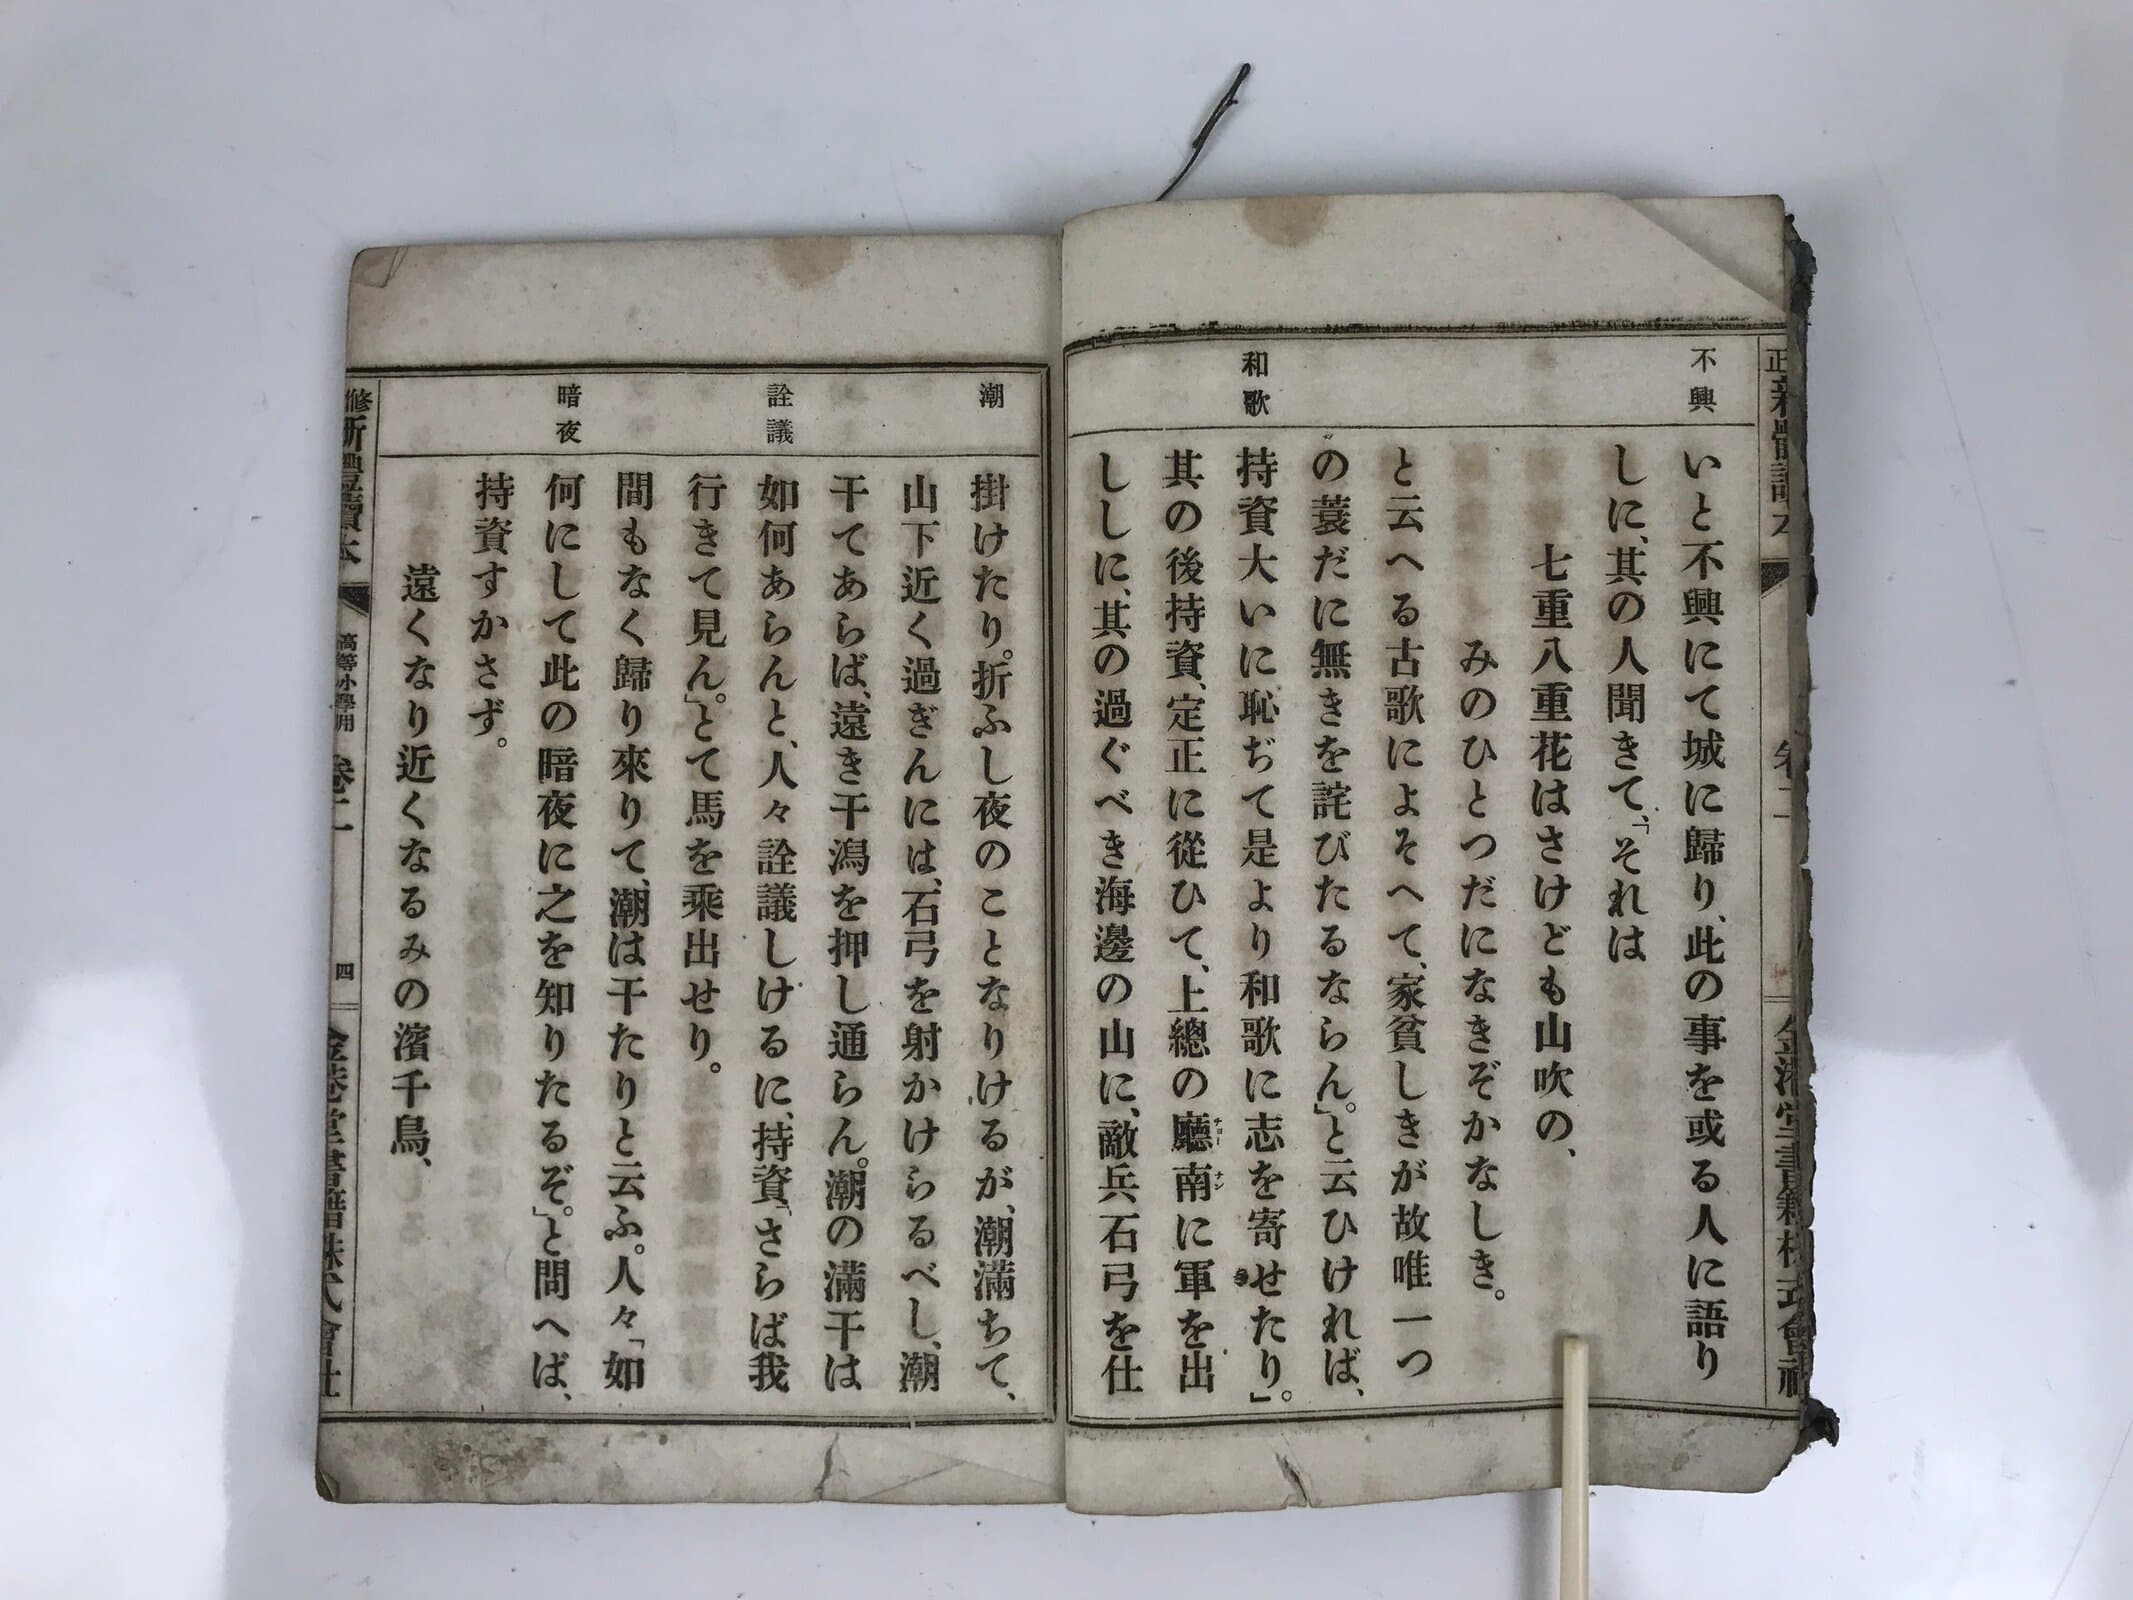 不興
和歌
いと不興にて城に歸り、此の事を或る人に語り
しに、其の人聞きて、「それは
七重八重花はさけども山吹の、
みのひとつだになきぞかなしき。
と云へる古歌によそへて、家貧しきが故唯一つ
の蓑だに無きを詫びたるならん。」と云ひければ、
持資大いに恥ぢて是より和歌に志を寄せたり」。
其の後持資、定正に從ひて、上總の廳南に軍を出
チョー ナン
ししに、其の過ぐべき海邊の山に、敵兵石弓を仕
潮
詮議
暗夜
掛けたり。折ふし夜のことなりけるが、潮滿ちて、
山下近く過ぎんには、石弓を射かけらるべし、潮
干てあらば、遠き干潟を押し通らん。潮の滿干は
如何あらんと、人々詮議しけるに、持資「さらば我
行きて見ん。」とて馬を乘出せり。
間もなく歸り來りて、潮は干たりと云ふ。人々「如
何にして此の暗夜に之を知りたるぞ。」と問へば、
持資すかさず。
遠くなり近くなるみの濱千鳥、
高等小學用
卷二
四
金港堂書籍株式會社